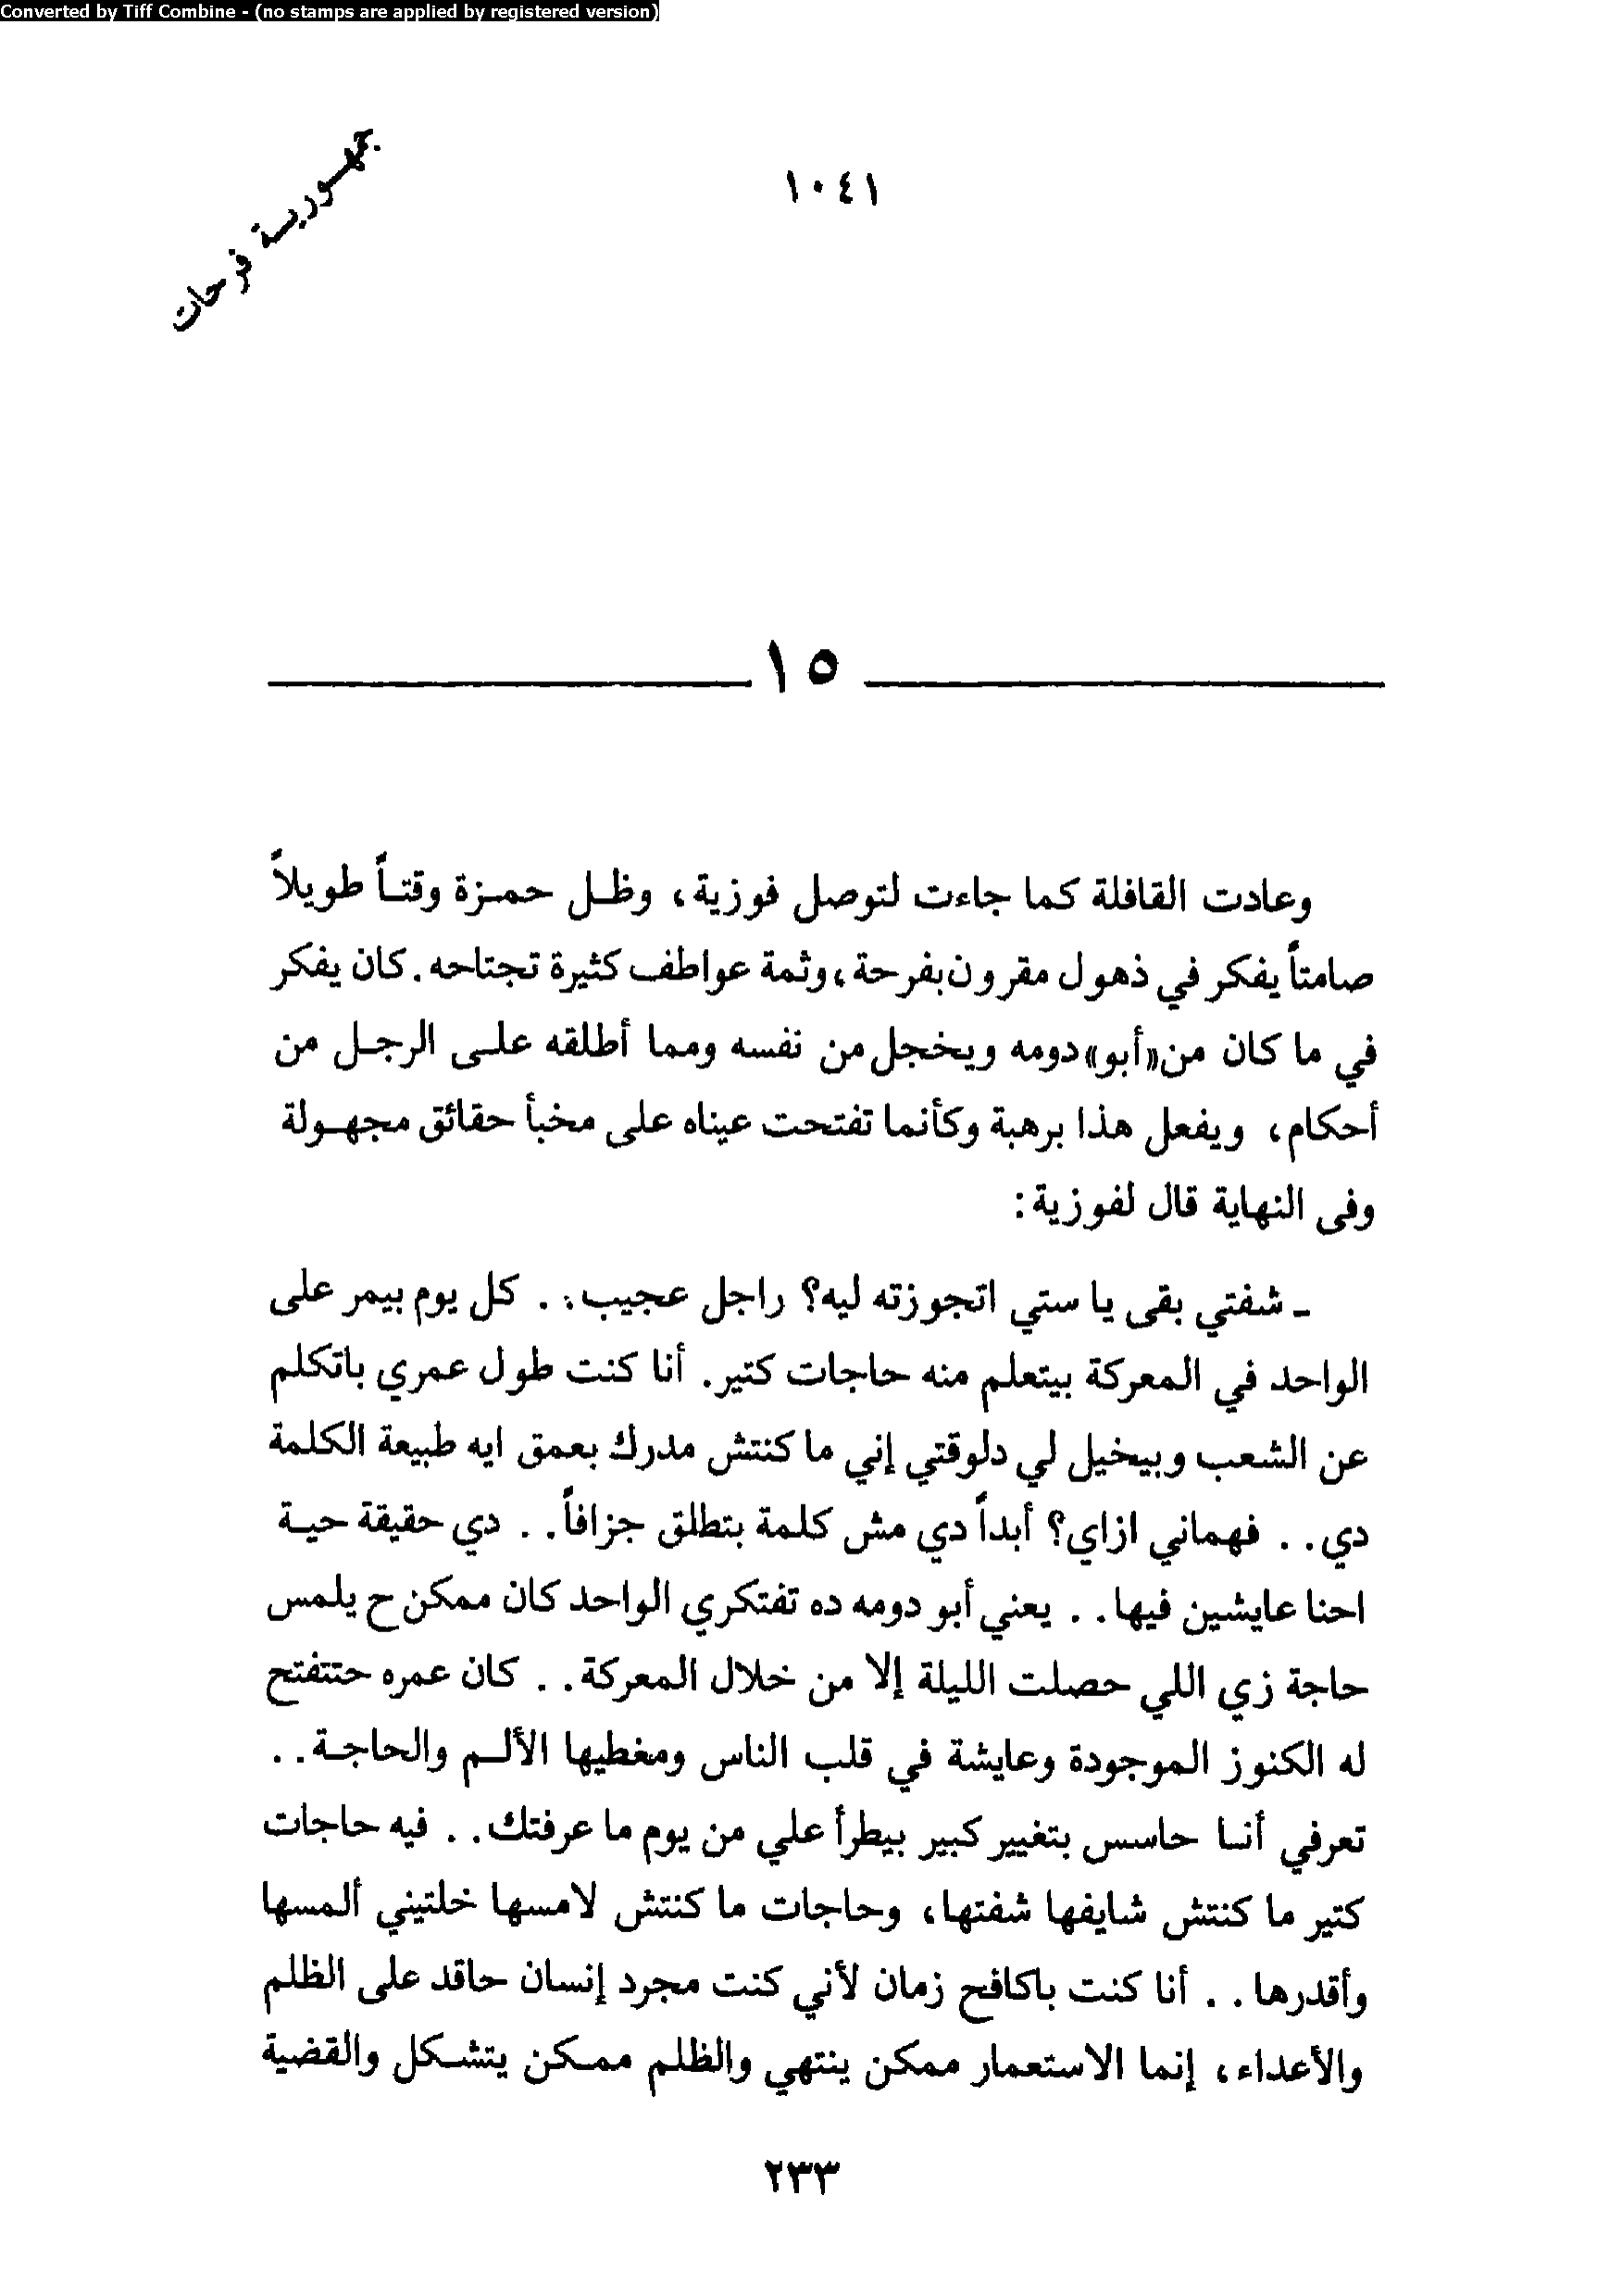 Converted by Tiff Combine - (no stamps are applied by registered version)
١٠٤١
جمهورية فرحات
١٥
وعادت القافلة كما جاءت لتوصل فوزية، وظل حمزة وقتاً طويلاً
صامتاً يفكر في ذهول مقرون بفرحة، وثمة عواطف كثيرة تجتاحه. كان يفكر
في ما كان من «أبو» دومه ويخجل من نفسه ومما أطلقه على الرجل من
أحكام، ويفعل هذا برهبة وكأنما تفتحت عيناه على مخبأ حقائق مجهولة
وفى النهاية قال لفوزية:
ـ شفتي بقى يا ستي اتجوزته ليه؟ راجل عجيب.. كل يوم بيمر على
الواحد في المعركة بيتعلم منه حاجات كتير. أنا كنت طول عمري باتكلم
عن الشعب وبيخيل لي دلوقتي إني ما كنتش مدرك بعمق ايه طبيعة الكلمة
دي.. فهماني ازاي؟ أبداً دي مش كلمة بتطلق جزافاً.. دي حقيقة حية
احنا عايشين فيها.. يعني أبو دومه ده تفتكري الواحد كان ممكن ح يلمس
حاجة زي اللي حصلت الليلة إلا من خلال المعركة.. كان عمره حتتفتح
له الكنوز الموجودة وعايشة في قلب الناس ومغطيها الألم والحاجة..
تعرفي أنا حاسس بتغيير كبير بيطرأ علي من يوم ما عرفتك.. فيه حاجات
كتير ما كنتش شايفها شفتها، وحاجات ما كنتش لامسها خلتيني ألمسها
وأقدرها.. أنا كنت باكافح زمان لأني كنت مجرد إنسان حاقد على الظلم
والأعداء، إنما الاستعمار ممكن ينتهي والظلم ممكن يتشكل والقضية
٢٣٣